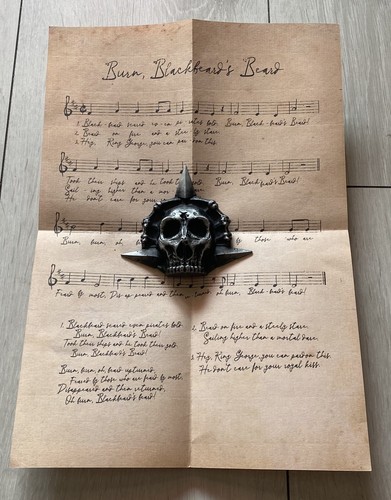 Burn, Blackbeard's Beard
1. Blackbeard scared even pirates lots. Burn, Blackbeard's Beard!
2. Beard on fire and a steely stare.
3. Hey, King George, you can pardon this.
Took their ships and he took their gold. Burn, Blackbeard's Beard!
Sailing higher than a mortal
He don't care for your
Burn, burn, oh, those who are
Feared by most, Disappeared and then burn, Blackbeard's beard!
1. Blackbeard scared even pirates lots.
Burn, Blackbeard's Beard!
Took their ships and he took their gold.
Burn, Blackbeard's Beard!
Burn, burn, oh, beard upturned,
Feared by those who are feared by most,
Disappeared and then returned,
Oh burn, Blackbeard's beard!
2. Beard on fire and a steely stare.
Sailing higher than a mortal dare.
3. Hey, King George, you can pardon this.
He don't care for your royal kiss.